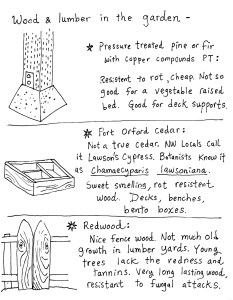 Wood & lumber in the garden -
* Pressure treated pine or fir
with copper compounds PT:
Resistent to rot, cheap. Not so
good for a vegetable raised
bed. Good for deck supports.
* Port Orford cedar:
Not a true cedar. NW Locals call
it Lawson's Cypress. Botanists know it
as Chamaecyparis lawsoniana.
Sweet smelling, rot resistent
wood. Decks, benches,
bento boxes.
* Redwood:
Nice fence wood. Not much old
growth in lumber yards. Young
trees lack the redness and
tannins. Very long lasting wood,
resistant to fungal attacks.